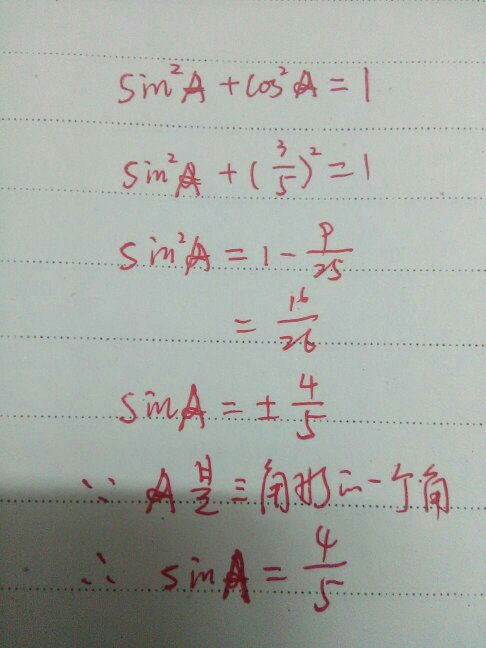 sin²A + cos²A = 1
sin²A + (3/5)² = 1
sin²A = 1 - 9/25
= 16/26
sinA = ± 4/5
∵ A是三角形的一个角
∴ sinA = 4/5